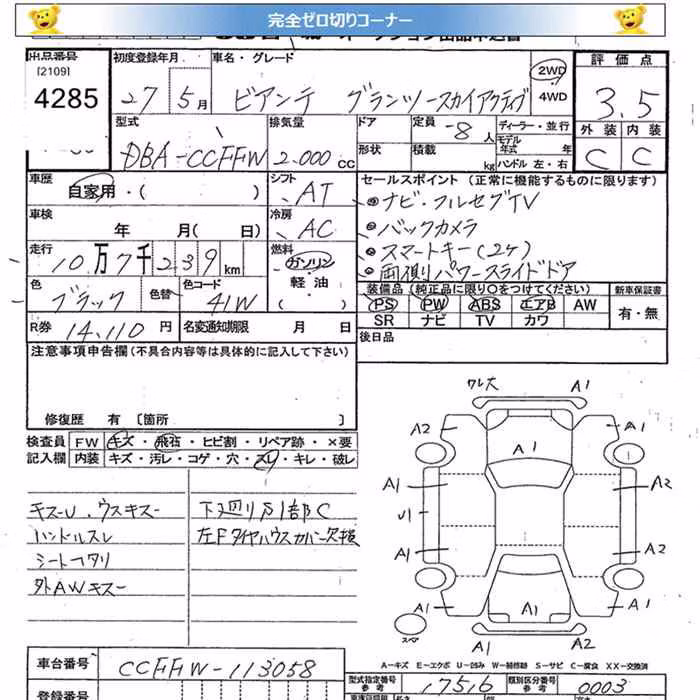 完全ゼロ切りコーナー
出品番号
[2109]
4285
初度登録年月
27年5月
車名・グレード
ビアンテ グランツ-スカイアクティブ
2WD
4WD
評価点
3.5
外装 内装
C C
型式
DBA-CCFFW
排気量
2.000cc
ドア
形状
定員 -8人
積載 kg
ディーラー・並行
モデル年式 年
ハンドル 左・右
車歴
自家用・( )
シフト
AT
車検
年 月( 日)
冷房
AC
走行
10万7千239km
燃料
ガソリン・
軽油・
( )
色
ブラック
色替
色コード
41W
R券 14,110円
名変通知期限 月 日
セールスポイント (正常に機能するものに限ります)
ナビ・フルセグTV
バックカメラ
スマートキー(2ケ)
両側パワースライドドア
装備品(純正品に限り○をつけてください)
PS PW ABS エアB AW
SR ナビ TV カワ
新車保証書
有・無
後日品
注意事項申告欄(不具合内容等は具体的に記入して下さい)
修復歴 有 [箇所 ]
検査員記入欄
FW キズ・飛石・ヒビ割・リペア跡・×要
内装 キズ・汚レ・コゲ・穴・スレ・キレ・破レ
キズーU、ウスキズー
ハンドルスレ
シートヘタリ
外AWキズー
下廻り万1部C
左Fタイヤハウスカバー欠損
ワレ大 A1
A2 A1
A1
A1 A2
U1
A1 A2
A1 A1 A1
スペア
A1 A2
A-キズ E-エクボ U-凹み W-補修跡 S-サビ C-腐食 XX-交換済
車台番号
CCFFW-113058
型式指定番号
参考
17516
類別区分番号
参考
0003
登録番号